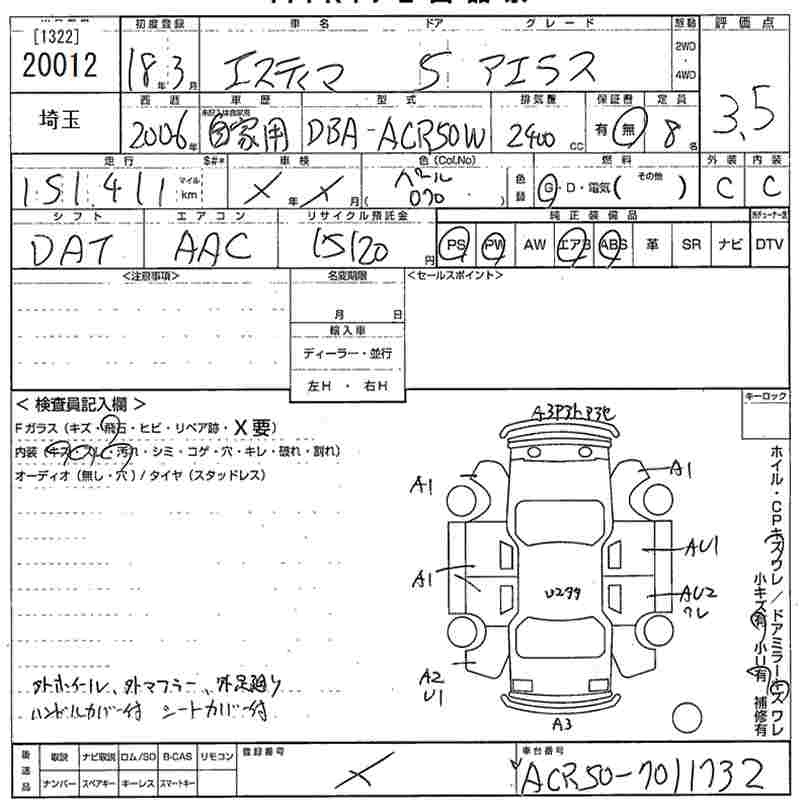 [1322]
20012
初度登録 車名 ドア グレード 駆動 評価点
18年3月 エスティマ 5 アエラス 2WD・4WD 3.5
埼玉
西暦 車歴 型式 排気量 保証書 定員
2006年 自家用 DBA-ACR50W 2400cc 有 無 8名
走行 $#* 車検 色(Col.No) 燃料 外装 内装
151,411 マイル km X年X月 パール 070 色替 G・D・電気( その他 ) C C
シフト エアコン リサイクル預託金 純正装備品
DAT AAC 15120円 PS PW AW エアB ABS 革 SR ナビ DTV
<注意事項> 名変期限 <セールスポイント>
月 日
輸入車
ディーラー・並行
左H ・ 右H
< 検査員記入欄 > キーロック
Fガラス (キズ・飛石・ヒビ・リペア跡・X要)
内装 (キズ・スレ・汚れ・シミ・コゲ・穴・キレ・破れ・割れ)
オーディオ (無し・穴) / タイヤ (スタッドレス)
A3P3
A1 A1
AU1
A1 AU2
ワレ
A2
U1
A3
ホイル・CPキズワレ / ドアミラーキズワレ
小キズ有 小U有 補修有
外ホイール、外マフラー、外足廻り
ハンドルカバー付 シートカバー付
後送品 取説 ナビ取説 ロム/SD B-CAS リモコン 登録番号 車台番号
ナンバー スペアキー キーレス スマートキー X ACR50-7011732